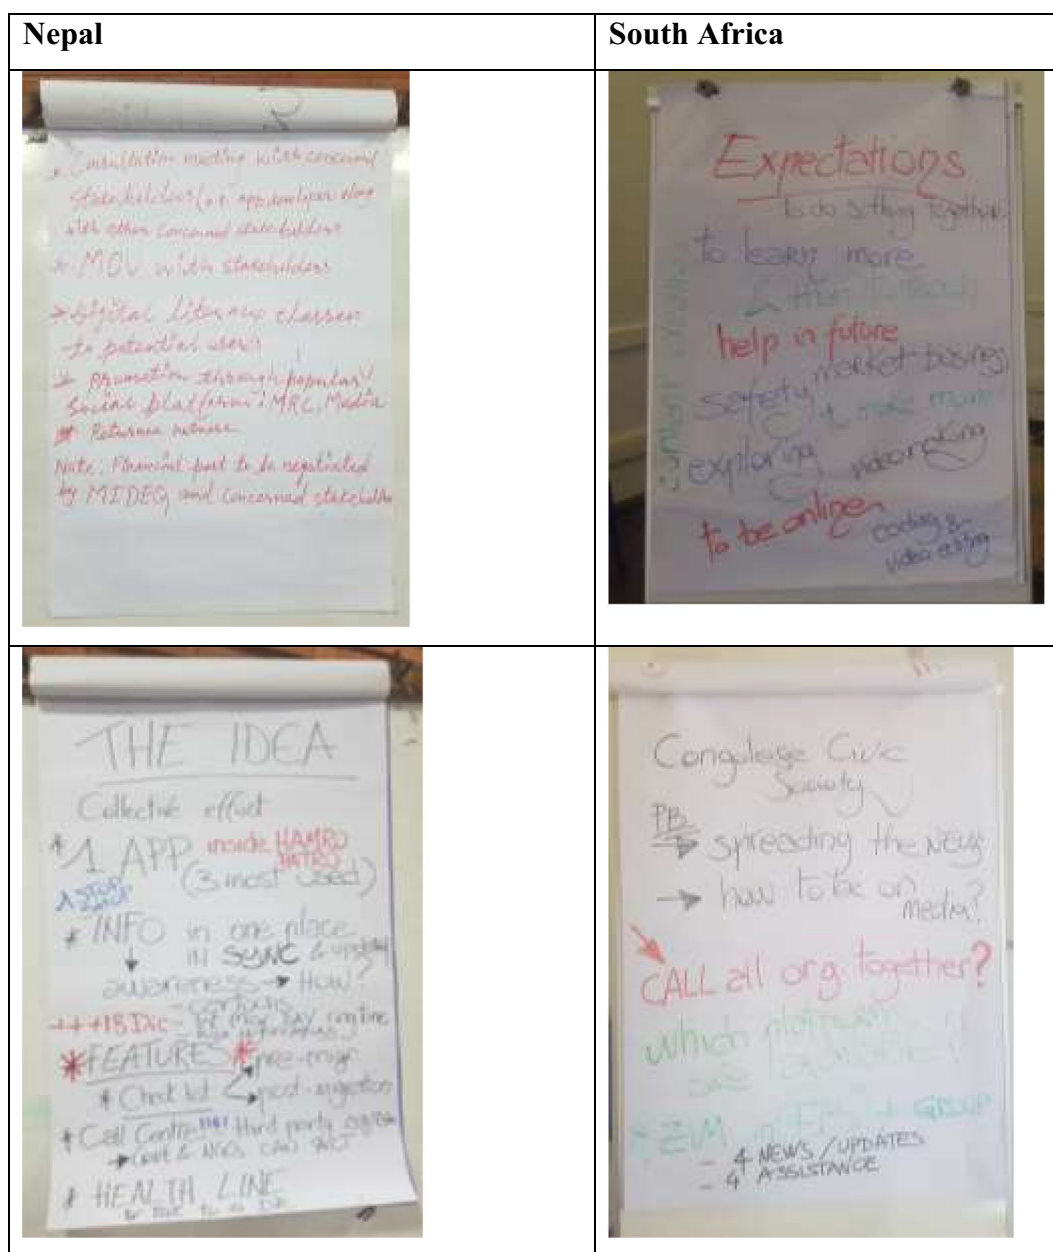 Nepal
South Africa
* Consultation meeting with concerned
stakeholders (i.e. app developer along
with other concerned stakeholders
* MOU with stakeholders
* Digital literacy classes
to potential users
* promotion through popular
social platform: MRC, Media
* Returnee
Note: Financial part to be negotiated
by MIDEQ and concerned stakeholder
Expectations
to do sthing together
to learn more
& then to teach
help in future
market business
safety
& make more
exploring
video making
to be online
coding &
video editing
THE IDEA
Collective effort
* 1 APP inside HAMRO
PATRO
(3 most used)
1 STOP
SHOP
* INFO in one place
IN SYNC & updated
awareness → How?
+++18 Dic - ringtone
*FEATURES* pre-migr
* Check list post-migration
* Call Centre third party
→ Govt & NGOs CAN ACT
* HEALTH LINE
Congolese Civic
Society
PB
→ spreading the NEWS
→ how to be on
media?
CALL all org. together?
which platform
ZIM GROUP
- 4 NEWS / UPDATES
- 4 ASSISTANCE